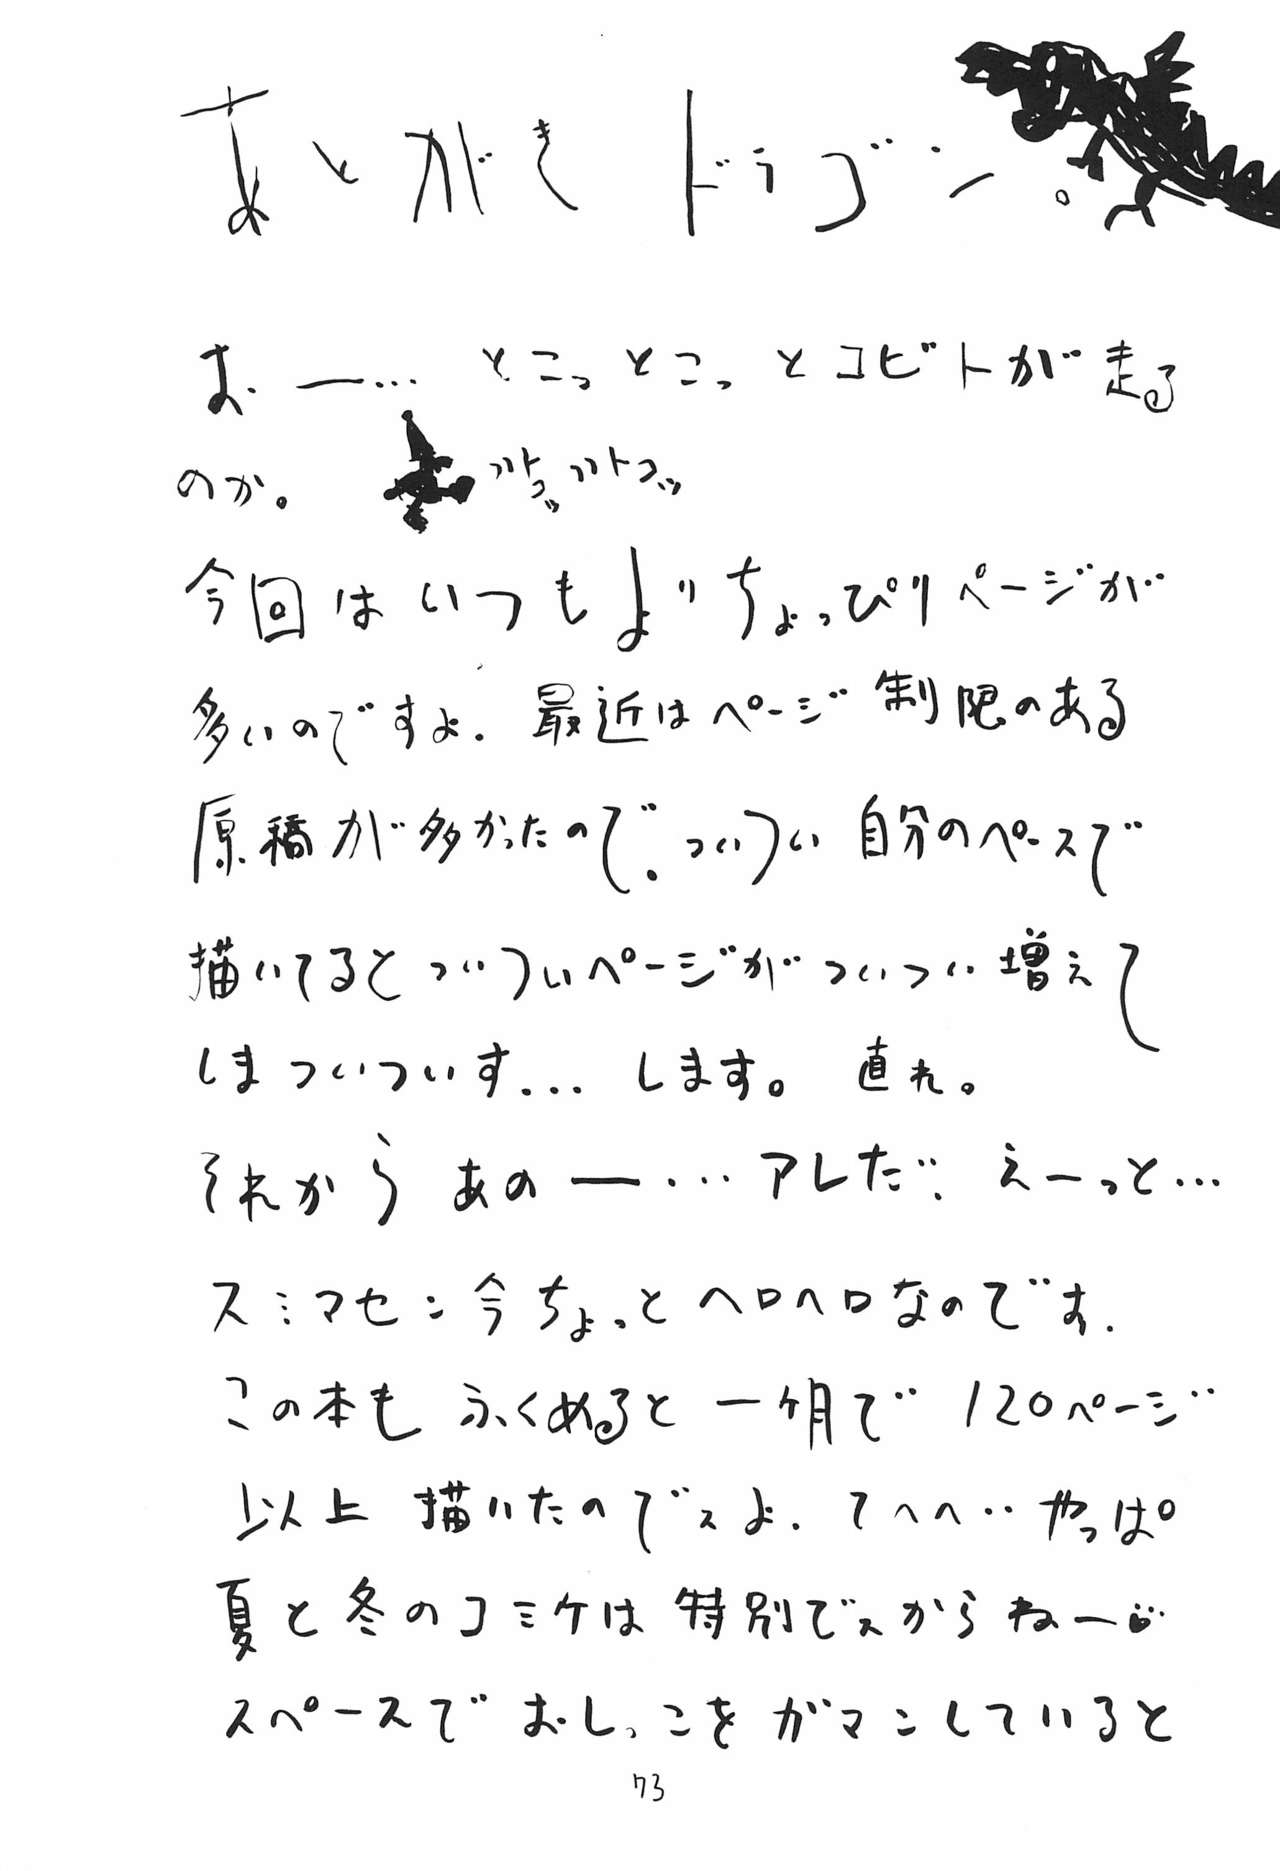 あとがきドラゴン。
おー… とこっとこっとコビトが走る
のか。
今回はいつもよりちょっぴりページが
多いのですよ. 最近はページ制限のある
原稿が多かったので、ついつい自分のペースで
描いてるとついついページがついつい増えて
しまついついす… します。 直れ。
それからあのー… アレだ‥ えーっと…
スミマセン今ちょっとヘロヘロなのです.
この本もふくめると一ヶ月で120ページ
以上描いたのでスよ. てへへ‥やっぱ
夏と冬のコミケは特別でスからねー
スペースでおしっこをガマンしていると
73